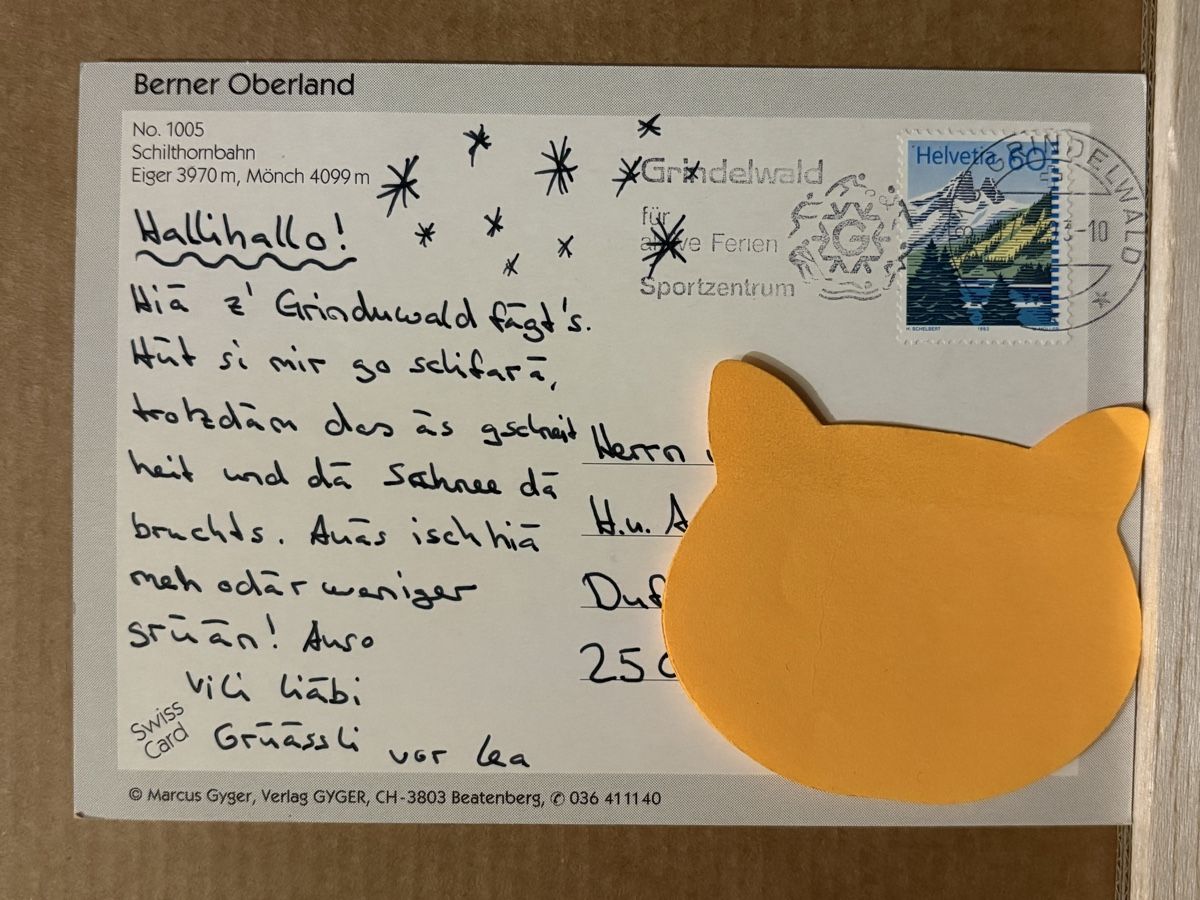 Berner Oberland
No. 1005
Schilthornbahn
Eiger 3970 m, Mönch 4099 m
Hallihallo!
Hiä z' Grinduwald fägt's.
Hüt si mir go schifarä,
trotzdäm das äs gschneit
heit und dä Schnee dä
bruchts. Auäs isch hiä
meh odär weniger
grüän! Auso
vili liäbi
Grüässli vor Lea
Swiss
Card
© Marcus Gyger, Verlag GYGER, CH-3803 Beatenberg, ✆ 036 41 11 40
Grindelwald
für
aktive Ferien
Sportzentrum
G
Helvetia 60
H. SCHELBERT 1993
GRINDELWALD
-10
Herrn
H.u. A
Duf
250